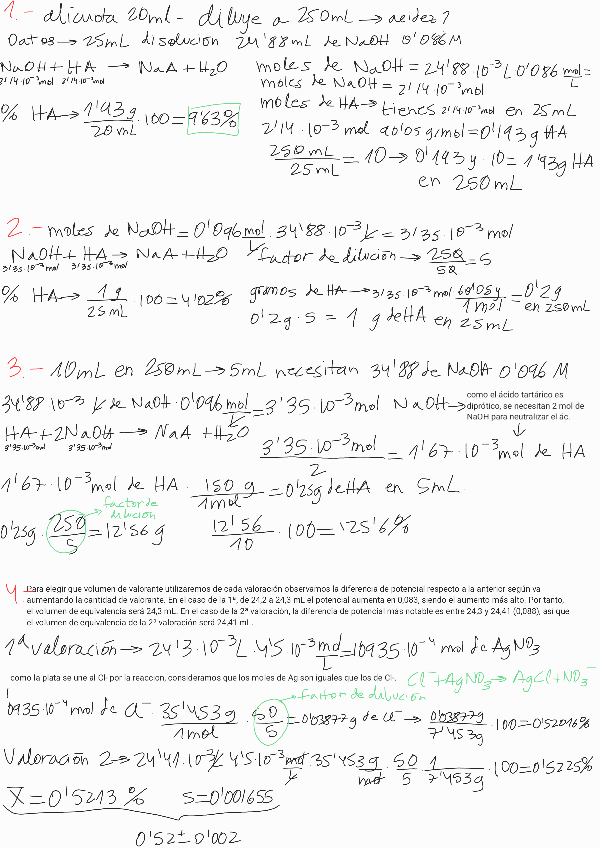 1.- alicuota 20ml - diluye a 250mL → acidez?
Datos → 25mL disolución 24'88 mL de NaOH 0'086M
NaOH + HA → NaA + H2O
2'14·10⁻³mol 2'14·10⁻³mol
moles de NaOH = 24'88·10⁻³L 0'086 mol/L =
moles de NaOH = 2'14·10⁻³mol
moles de HA → tienes 2'14·10⁻³mol en 25mL
% HA → 1'93g/20mL · 100 = 9'63%
2'14·10⁻³mol 90'05g/mol = 0'193g HA
250mL/25mL = 10 → 0'193g·10 = 1'93g HA
en 250mL
2.- moles de NaOH = 0'096 mol/L · 34'88·10⁻³L = 3'35·10⁻³mol
NaOH + HA → NaA + H2O factor de dilución → 250/50 = 5
3'35·10⁻³mol 3'35·10⁻³mol
% HA → 1g/25mL · 100 = 4'02% gramos de HA → 3'35·10⁻³mol 60'05g/1mol = 0'2g en 250mL
0'2g·5 = 1 g de HA en 25mL
3.- 10mL en 250mL → 5mL necesitan 34'88 de NaOH 0'096 M
34'88·10⁻³L de NaOH·0'096 mol/L = 3'35·10⁻³mol NaOH →
como el ácido tartárico es
diprótico, se necesitan 2 mol de
NaOH para neutralizar el ác.
HA + 2NaOH → NaA + H2O
3'35·10⁻³mol 3'35·10⁻³mol
3'35·10⁻³mol/2 = 1'67·10⁻³mol de HA
1'67·10⁻³mol de HA · 150 g/1mol = 0'25g de HA en 5mL
factor de
dilución
0'25g · 250/5 = 12'56 g 12'56/10 · 100 = 125'6%
4.- Para elegir que volumen de valorante utilizaremos de cada valoración observamos la diferencia de potencial respecto a la anterior según va
aumentando la cantidad de valorante. En el caso de la 1ª, de 24,2 a 24,3 mL el potencial aumenta en 0,083, siendo el aumento más alto. Por tanto,
el volumen de equivalencia será 24,3 mL. En el caso de la 2ª valoración, la diferencia de potencial más notable es entre 24,3 y 24,41 (0,088), así que
el volumen de equivalencia de la 2ª valoración será 24,41 mL.
1ª valoración → 24'3·10⁻³L·4'5·10⁻³mol/L = 1'0935·10⁻⁴ mol de AgNO3
como la plata se une al Cl- por la reaccion, consideramos que los moles de Ag son iguales que los de Cl-. Cl⁻ + AgNO3 → AgCl + NO3⁻
factor de dilución
1'0935·10⁻⁴mol de Cl⁻ · 35'453g/1mol · 50/5 = 0'03877g de Cl⁻ → 0'03877g/7'453g · 100 = 0'5201%
Valoración 2 → 24'41·10⁻³L 4'5·10⁻³mol/L · 35'453g/mol · 50/5 · 1/7'453g · 100 = 0'5225%
X̄ = 0'5213% s = 0'001655
0'52 ± 0'002